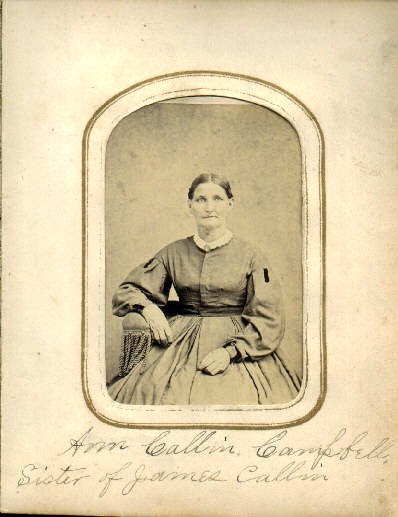 Ann Callin. Campbell,
Sister of James Callin